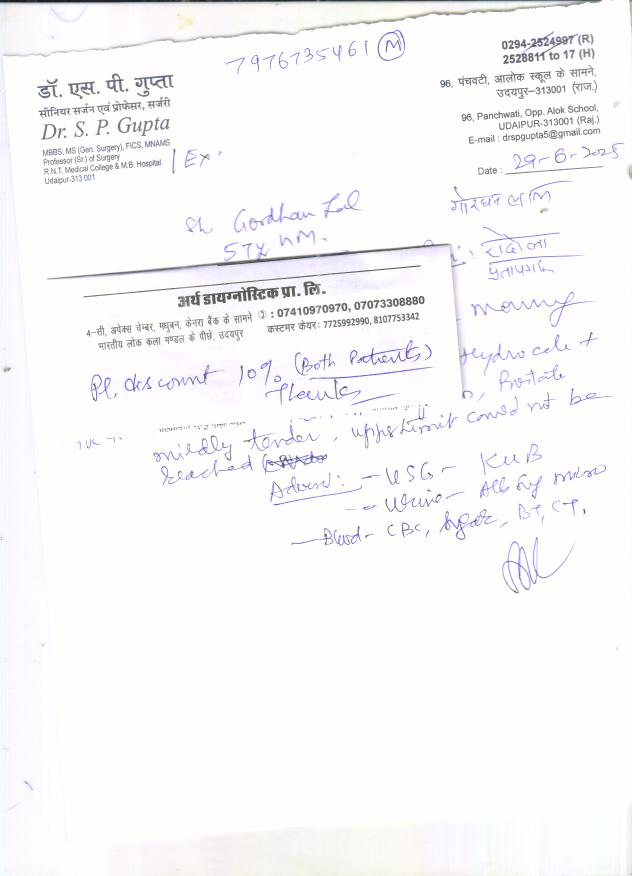 7976735461 (M)
डॉ. एस. पी. गुप्ता
सीनियर सर्जन एवं प्रोफेसर, सर्जरी
Dr. S. P. Gupta
MBBS, MS (Gen. Surgery), FICS, MNAMS
Professor (Sr.) of Surgery
R.N.T. Medical College & M.B. Hospital
Udaipur-313 001
0294-2524997 (R)
2528811 to 17 (H)
96, पंचवटी, आलोक स्कूल के सामने,
उदयपुर–313001 (राज.)
96, Panchwati, Opp. Alok School,
UDAIPUR-313001 (Raj.)
E-mail : drspgupta5@gmail.com
Date : 29-6-2025
Ex.
Sh Gordhan Lal
57y
गोरधन लाल
प्रतापगढ़
अर्थ डायग्नोस्टिक प्रा. लि.
4–सी, अपेक्स चेम्बर, मधुबन, केनरा बैंक के सामने
भारतीय लोक कला मण्डल के पीछे, उदयपुर
: 07410970970, 07073308880
कस्टमर केयर: 7725992990, 8107753342
Pl. discount 10% (Both Patients)
Thanks
Hydrocele +
Prostate
mildly tender, upper limit could not be
reached
Advised: – USG – KUB
– Urine – Alb Sug micro
– Blood – CBC, Sugar, BT, CT,